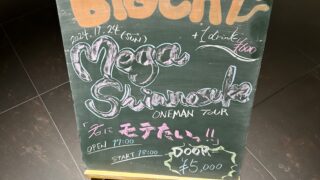 BIGCAT
2024.11.24(sun)
+1drink ¥600
Mega
Shinnosuke
ONEMAN TOUR
モテたいっ!!
OPEN 17:00
START 18:00
DOOR
¥5,000